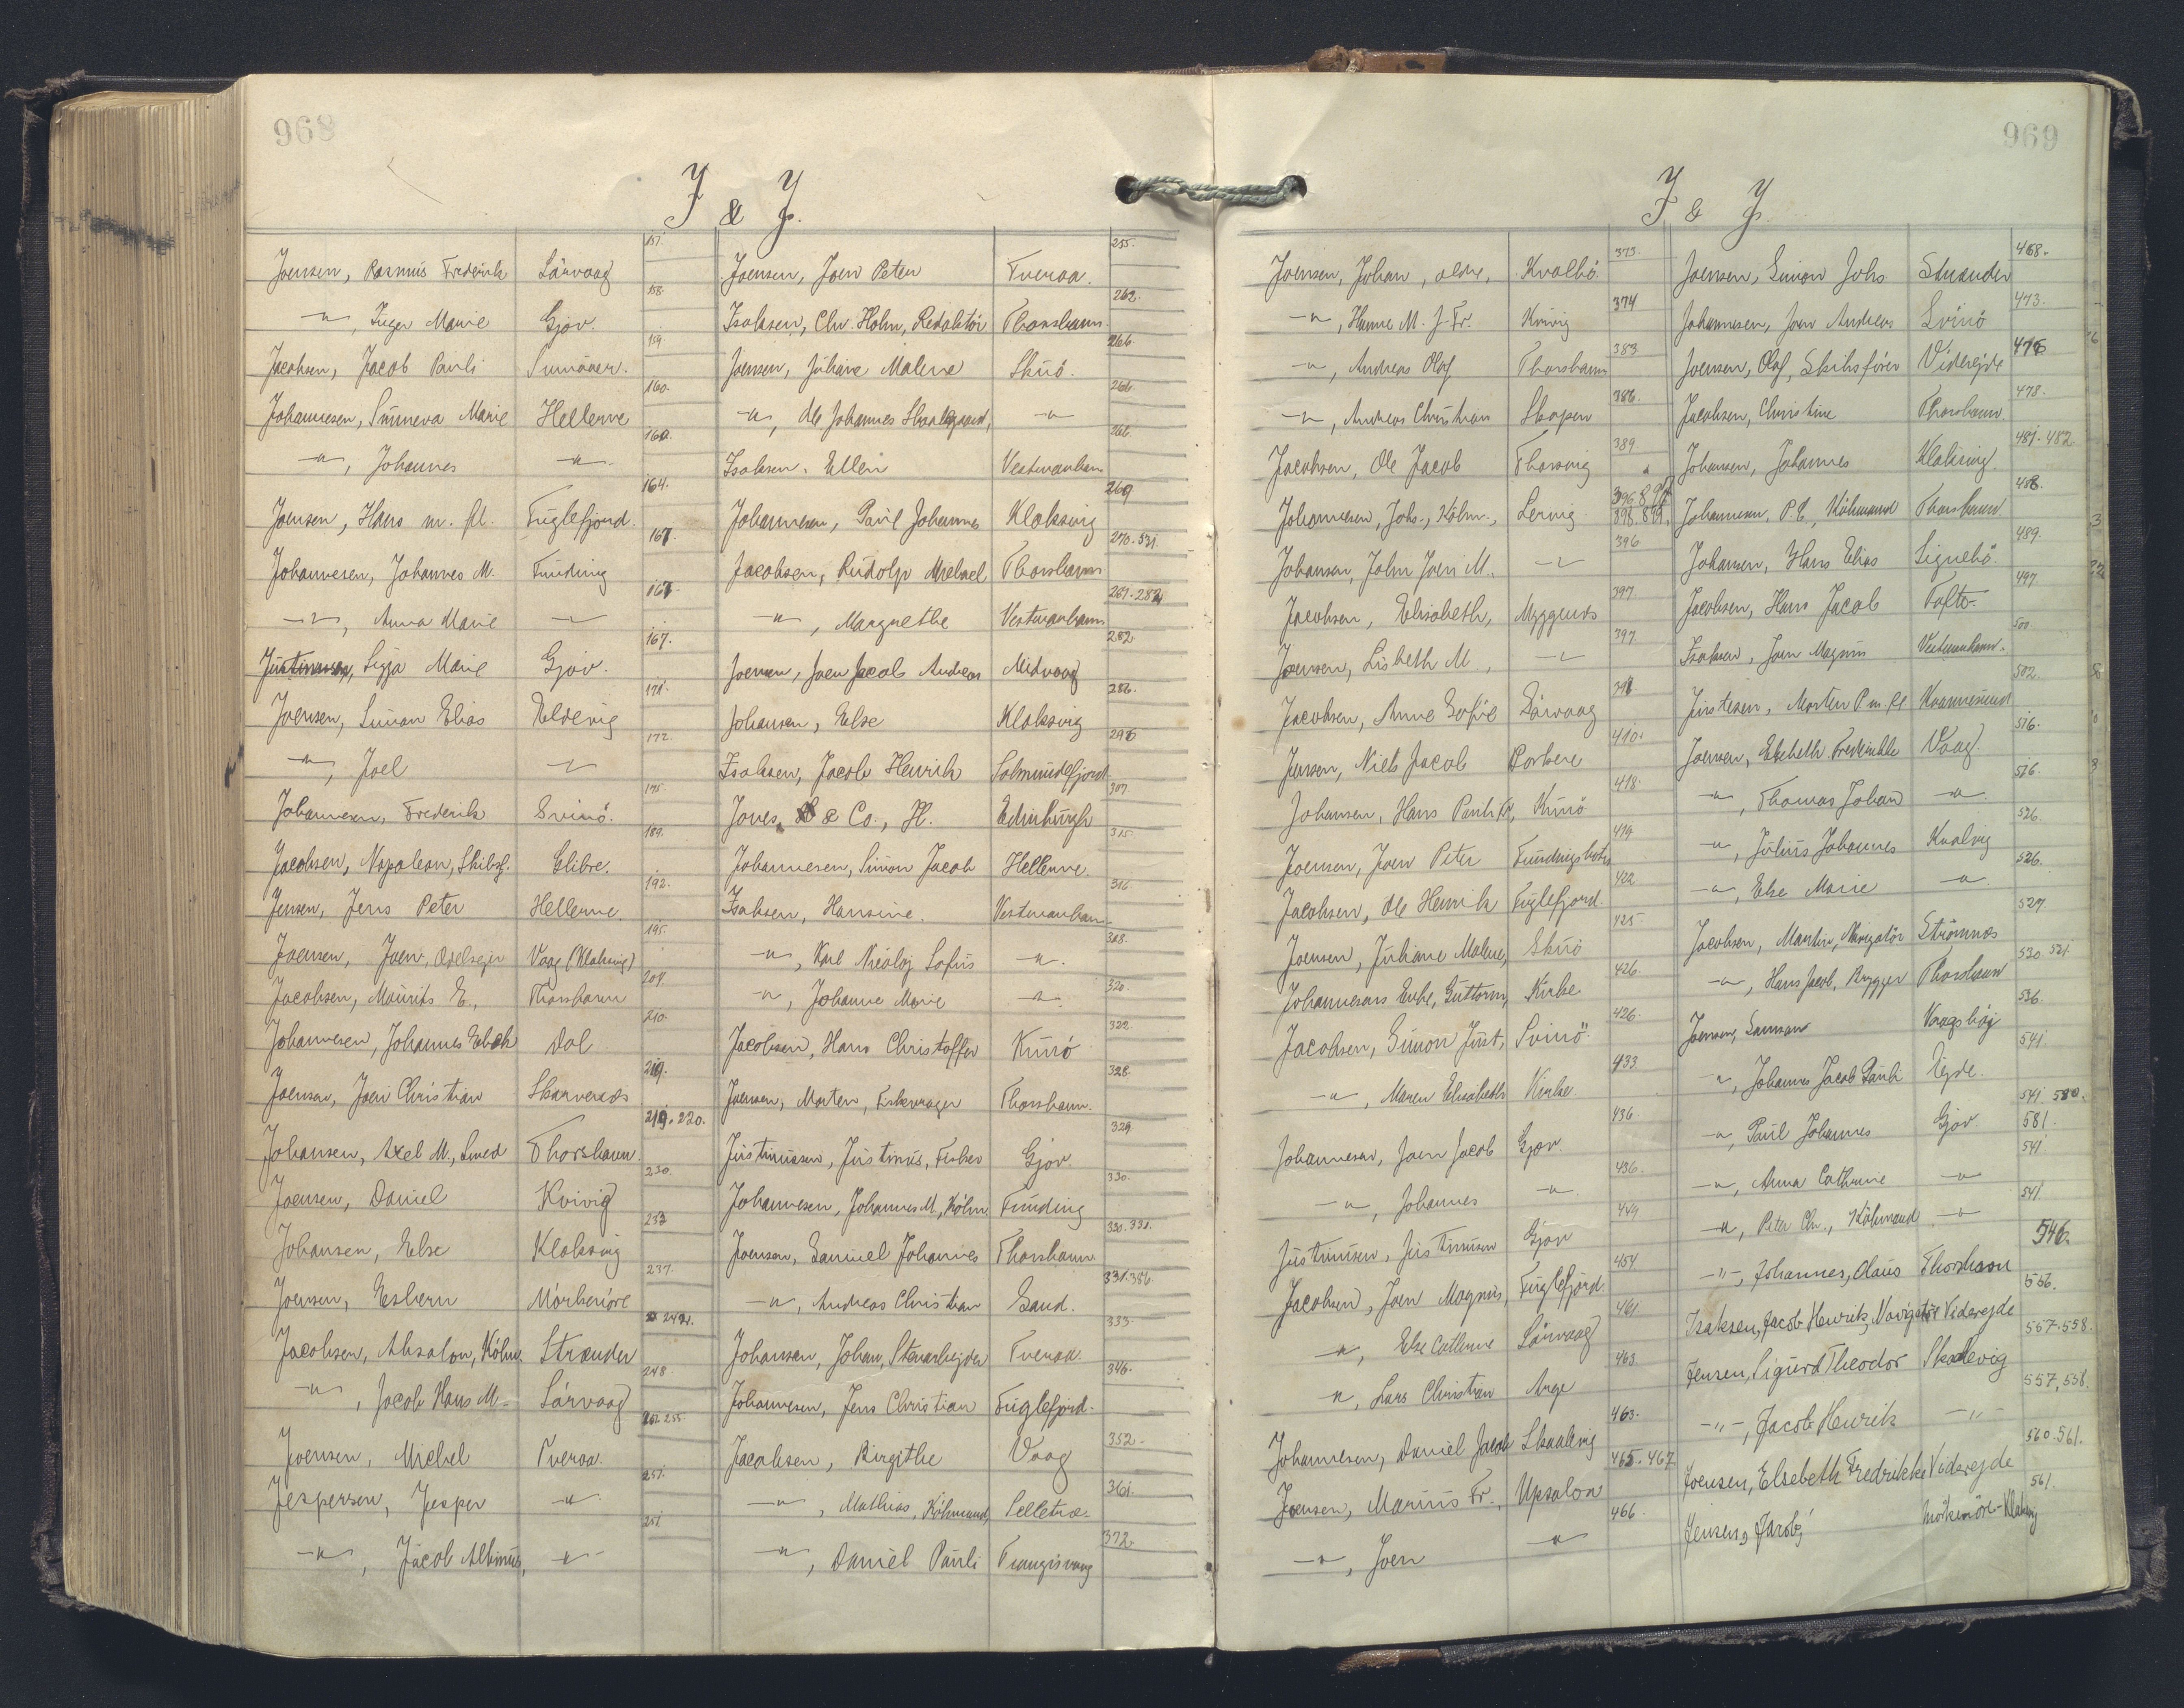 968
I & J.
Joensen, Rasmus Frederik Sörvaag 157.
-"-, Inger Marie Gjov. 158.
Jacobsen, Jacob Pauli Sumböer. 159.
Johannesen, Sunneva Marie Hellerne 160.
-"-, Johannes -"- 160.
Joensen, Hans m. fl. Fuglefjord. 164.
Johannesen, Johannes M. Funding 167.
-"-, Anna Marie -"- 167.
Justinussen, Sigga Marie Gjov. 167.
Joensen, Simon Elias Eldevig 171.
-"-, Joel -"- 172.
Johannesen, Frederik Svinö. 175.
Jacobsen, Napoleon, Skibsf. Glibre. 189.
Jensen, Jens Peter Hellerne 192.
Joensen, Joen, Odelsejer Vaag (Klaksvig) 195.
Jacobsen, Maurits E., Thorshavn 209.
Johannesen, Johannes Eback Dal 210.
Joensen, Joen Christian Skarvenæs 219.
Johansen, Axel M., Smed Thorshavn. 219. 220.
Joensen, Daniel Kvivig 230.
Johansen, Else Klaksvig 233
Joensen, Esbern Mörkeröre 237.
Jacobsen, Absalon, Kölm. Strænder 242.
-"-, Jacob Hans M. Sörvaag 248.
Joensen, Michel Tveraa. 252. 255.
Jespersen, Jesper -"- 257.
-"-, Jacob Albinus, -"- 257.
Joensen, Joen Peter Tveraa. 255.
Isaksen, Chr. Holm, Redaktör Thorshavn. 262.
Joensen, Juliane Malene Skuö. 266.
-"-, Ole Johannes Skaalegaard, -"- 266.
Isaksen, Ellen Vestmanhavn 266.
Johannesen, Paul Johannes Klaksvig 269.
Jacobsen, Rudolf Michael Thorshavn 270. 531.
-"-, Margrethe Vestmanhavn 267. 282
Joensen, Joen Jacob Andreas Midvaag 282.
Johansen, Else Klaksvig 286.
Isaksen, Jacob Henrik Solmundefjord 296
Jones & Co., H. Edinburgh 307.
Johannesen, Simon Jacob Hellerne 315.
Isaksen, Hansine. Vestmanhavn 316
-"-, Karl Nicolaj Sofus -"- 318.
-"-, Johanne Marie -"- 320.
Jacobsen, Hans Christoffer Kunö 322.
Joensen, Morten, Fiskevrager Thorshavn. 328.
Justinussen, Justinus, Fisker Gjov. 329.
Johannesen, Johannes M., Kölm. Funding 330.
Joensen, Samuel Johannes Thorshavn 330. 331.
-"-, Andreas Christian Sand. 331. 386.
Johansen, Johan, Stenarbejder Tveraa. 333.
Johannesen, Jens Christian Fuglefjord. 346.
Jacobsen, Birgithe Vaag 352.
-"-, Mathias, Köbmand, Selletræ. 361.
-"-, Daniel Pauli Trangisvaag 372.
969
I & J.
Joensen, Johan, ældre, Kvalbö. 373.
-"-, Hanne M. J. Fr. Kvivig 374
-"-, Andreas Olaf Thorshavn 383
-"-, Andreas Christian Skopen 386.
Jacobsen, Ole Jacob Thorsvig 389
Johannesen, Johs., Kölm., Lervig
Johansen, John Joen M. -"- 396
Jacobsen, Elisabeth, Myggenæs 397
Joensen, Lisbeth M., -"- 397
Jacobsen, Anne Sofie Sörvaag 398
Jensen, Niels Jacob Porkere 410.
Johansen, Hans Pauli Fr, Kunö 418.
Joensen, Joen Peter Fundingsbotn 419
Jacobsen, Ole Henrik Fuglefjord. 422
Joensen, Juliane Malene, Skuö 425.
Johannesens Enke, Guttorm, Kirke 426.
Jacobsen, Simon Just, Svinö 426.
-"-, Maren Elisabeth Kirke 433
Johannesen, Joen Jacob Gjov. 436.
-"-, Johannes -"- 436.
Justinusen, Justinusen Gjov 449
Jacobsen, Joen Magnus, Fuglefjord. 454
-"-, Else Cathrine Sörvaag 461
-"-, Lars Christian Arge 463
Johannesen, Daniel Jacob Skaalevig 463.
Joensen, Marius Fr., Upsalon 465. 467
-"-, Joen -"- 466.
Joensen, Simon Johs Strænder 468.
Johannesen, Joen Andreas Svinö 473.
Joensen, Olaf, Skibsförer Viderejde 476
Jacobsen, Christine Thorshavn 478.
Johansen, Johannes Klaksvig. 481. 482
Johannesen, P. E, Köbmand Thorshavn 488.
Johansen, Hans Elias Signebö. 489.
Jacobsen, Hans Jacob Tofte. 497.
Isaksen, Joen Magnus Vestmanhavn. 500
Justesen, Morten P m fl Kvannesund 502.
Joensen, Elsebeth Fredrikke Vaag. 516.
-"-, Thomas Johan -"- 516.
-"-, Julius Johannes Kvalvig 526.
-"-, Else Marie -"- 526.
Jacobsen, Martin, Navigatör Strömnæs 527.
-"-, Hans Jacob, Brygger Thorshavn 530 531.
Joensen, Samson Vaagshöj 536.
-"-, Johannes Jacob Pauli Ejde. 541.
-"-, Paul Johannes Gjov. 541 580. 581.
-"-, Anna Cathrine -"- 541
-"-, Peter Chr., Köbmand -"- 541.
-"-, Johannes, Olaus Thorshavn 546.
Isaksen, Jacob Henrik, Navigatör Viderejde 556.
Jensen, Sigurd Theodor Skaalevig 557. 558.
-"-, Jacob Henrik -"- 557, 558.
Joensen, Elsebeth Fredrikke Viderejde 560. 561.
Jensen, Jacob, Mörkeröre-Klaksvig 561.